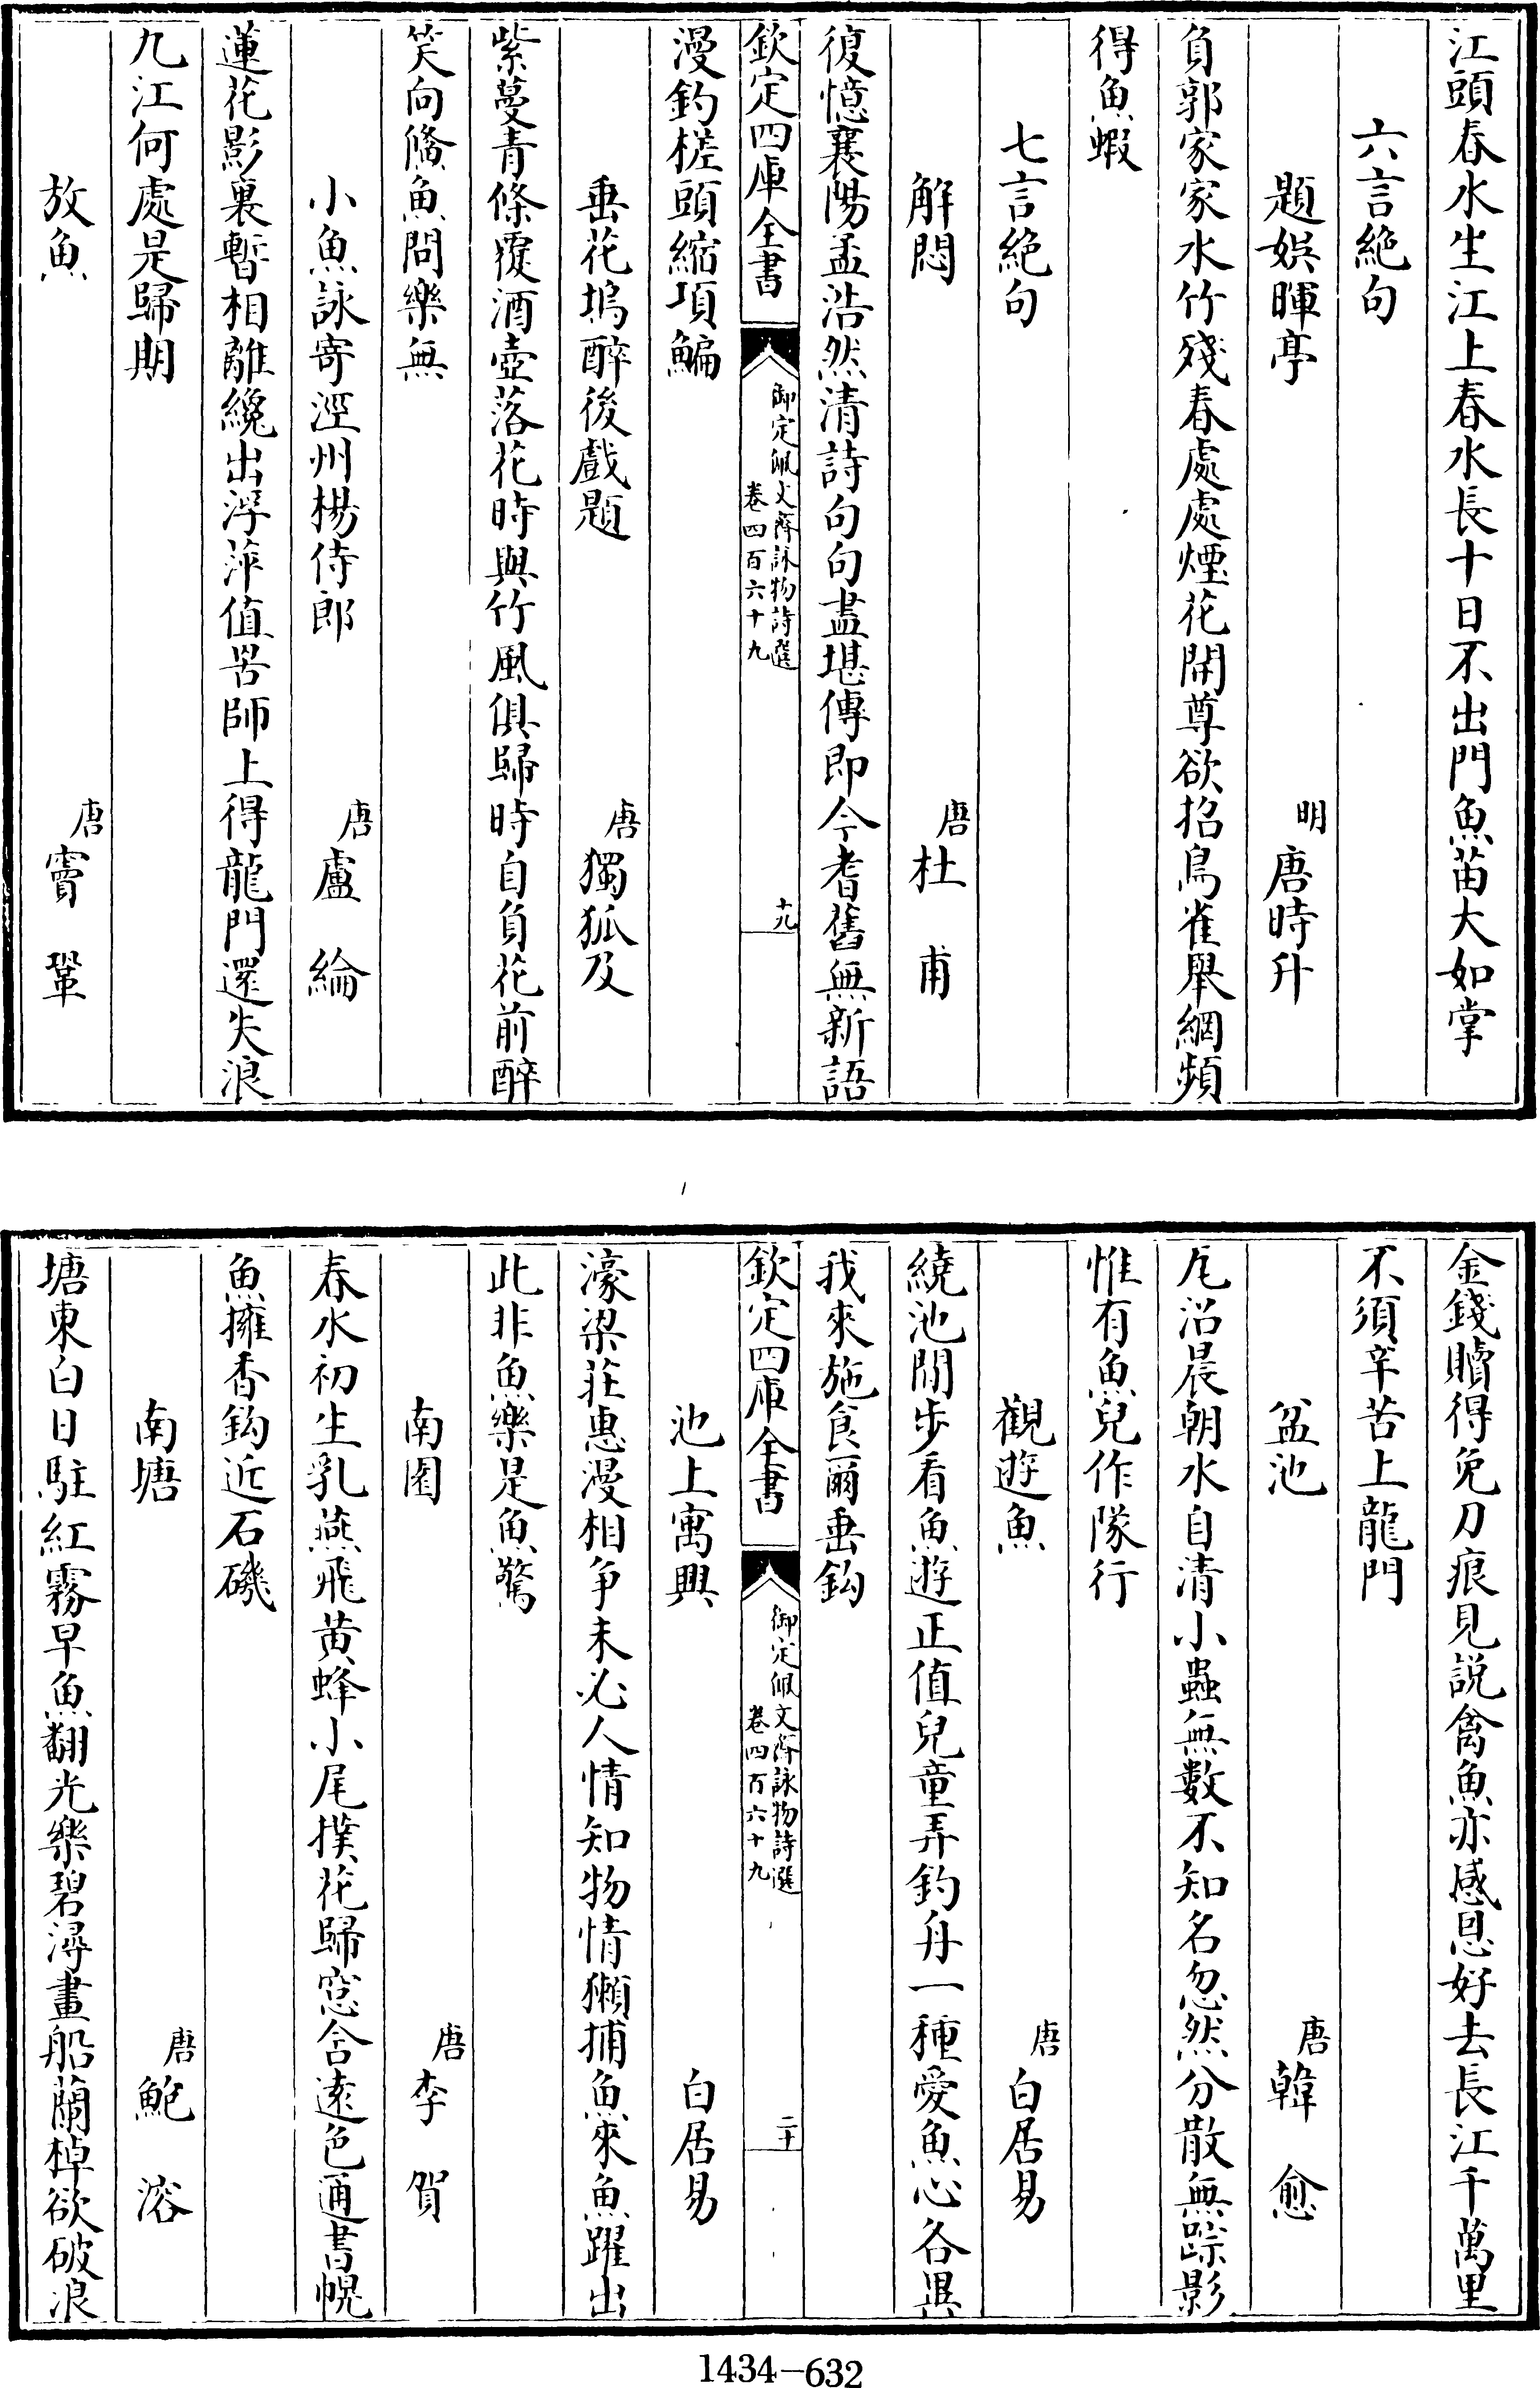 江頭春水生江上春水長十日不出門魚苗大如掌
六言絶句
題娯暉亭 明 唐時升
負郭家家水竹殘春處處煙花開尊欲招鳥雀舉網頻
得魚蝦
七言絶句
解悶 唐 杜甫
復憶襄陽孟浩然清詩句句盡堪傳即今耆舊無新語
欽定四庫全書 御定佩文齋詠物詩選 卷四百六十九 十九
漫釣槎頭縮項鯿
垂花塢醉後戲題 唐 獨狐及
紫蔓青條覆酒壺落花時與竹風俱歸時自負花前醉
笑向鯈魚問樂無
小魚詠寄涇州楊侍郎 唐 盧綸
蓮花影裏暫相離纔出浮萍值罟師上得龍門還失浪
九江何處是歸期
放魚 唐 竇鞏
金錢贖得免刀痕見說禽魚亦感恩好去長江千萬里
不須辛苦上龍門
盆池 唐 韓愈
瓦沼晨朝水自清小蟲無數不知名忽然分散無踪影
惟有魚兒作隊行
觀遊魚 唐 白居易
繞池閒步看魚遊正值兒童弄釣舟一種愛魚心各異
我來施食爾垂鈎
欽定四庫全書 御定佩文齋詠物詩選 卷四百六十九 二十
池上寓興 白居易
濠梁莊惠漫相爭未必人情知物情獺捕魚來魚躍出
此非魚樂是魚驚
南園 唐 李賀
春水初生乳燕飛黃蜂小尾撲花歸窓含遠色通書幌
魚擁香鈎近石磯
南塘 唐 鮑溶
塘東白日駐紅霧早魚翻光樂碧潯畫船蘭棹欲破浪
1434-632